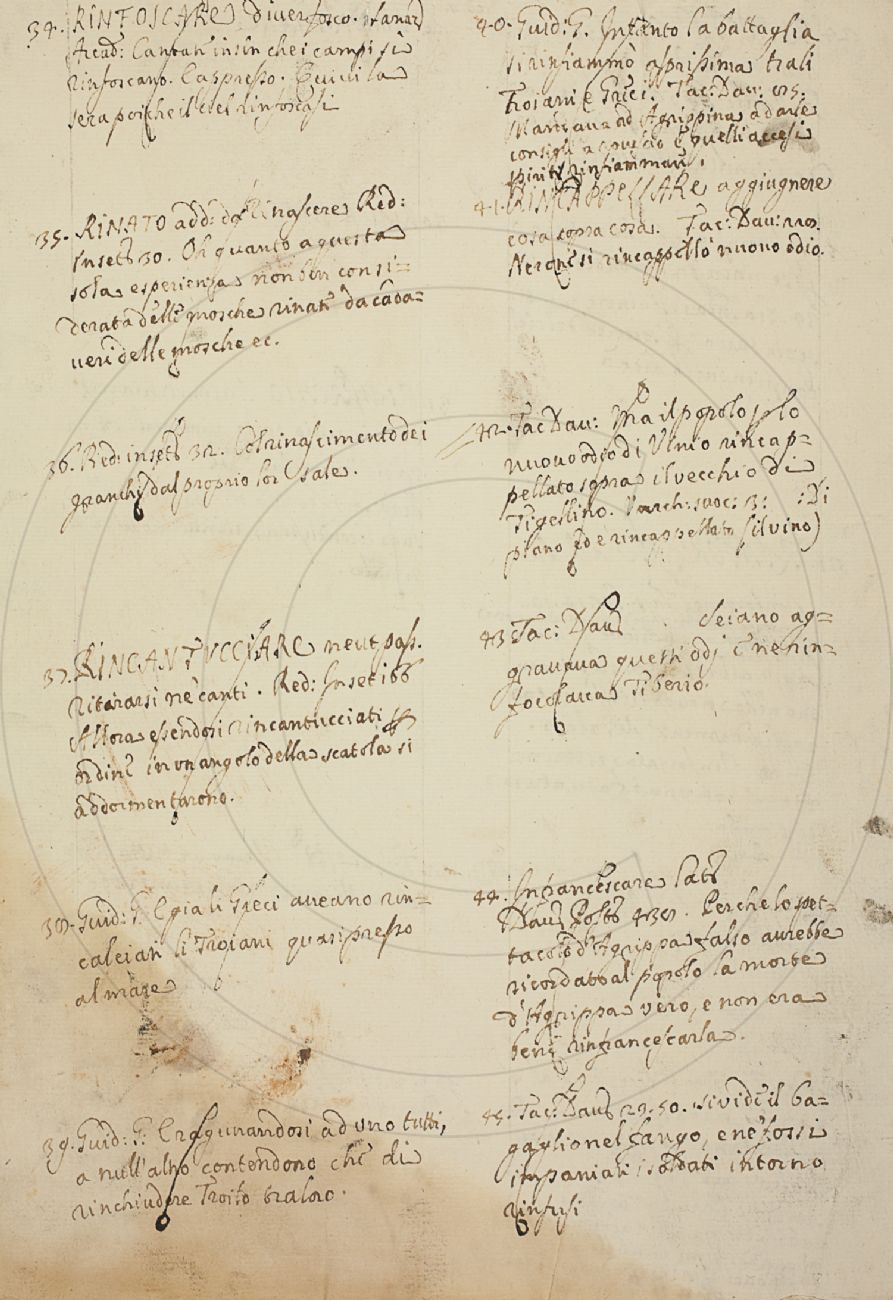 34. RINFOSCARE divenir fosco. Sanaz
Arcad: Cantan' insin che i campi si
rinfoscano. E appresso. Quivi la
sera poiche il ciel rinfoscasi
35. RINATO add: da Rinascere Red:
Insett 30. Oh quanto a questa
sola esperienza non ben consi=
derata delle mosche rinate da cada=
veri delle mosche ec.
36. Red: insett 32. Col rinascimento dei
granchi dal proprio lor sale.
37. RINCANTUCCIARE neut pass.
ritirarsi ne canti. Red: Inset 166
Allora essendosi rincantucciati
ordine in un angolo della scatola si
addormentarono.
38. Guid: G. E gia li Greci aveano rin=
calciati li Troiani quasi presso
al mare
39. Guid: G. E ragunandosi ad uno tutti,
a null'altro contendono che di
rinchiudere Troilo tra loro.
40. Guid: G. Intanto la battaglia
si rinfiammò asprissima tra li
Troiani e Greci. Tac: Dav:
Marziana ad Agrippina ad arse
consigli a e quelli accesi
spiriti rinfiammav.
41. RINCAPPELLARE aggiugnere
cosa sopra cosa. Tac: Dav:
Nerone si rincappellò nuovo odio.
42. Tac Dav: Ma il popolo solo
nuovo odio di Vinio rincap=
pellato sopra il vecchio di
Tigellino. Varch: suoc: 3: : Di
piano Ed e rincappellato (il vino)
43 Tac: Dav . Seiano ag=
gravava questi odj e ne rin=
focolava Tiberio.
44. Infrancescare Latt
Dav Post 439. Perche lo spet=
tacolo d'Agrippa falso avrebbe
ricordato al popolo la morte
d'Agrippa vero, e non era
bene rinfrancescarla.
45. Tac: Dav 29. 50. si vide il ba=
gaglio nel fango, e ne fossi
impaniati i soldati intorno
rinfusi